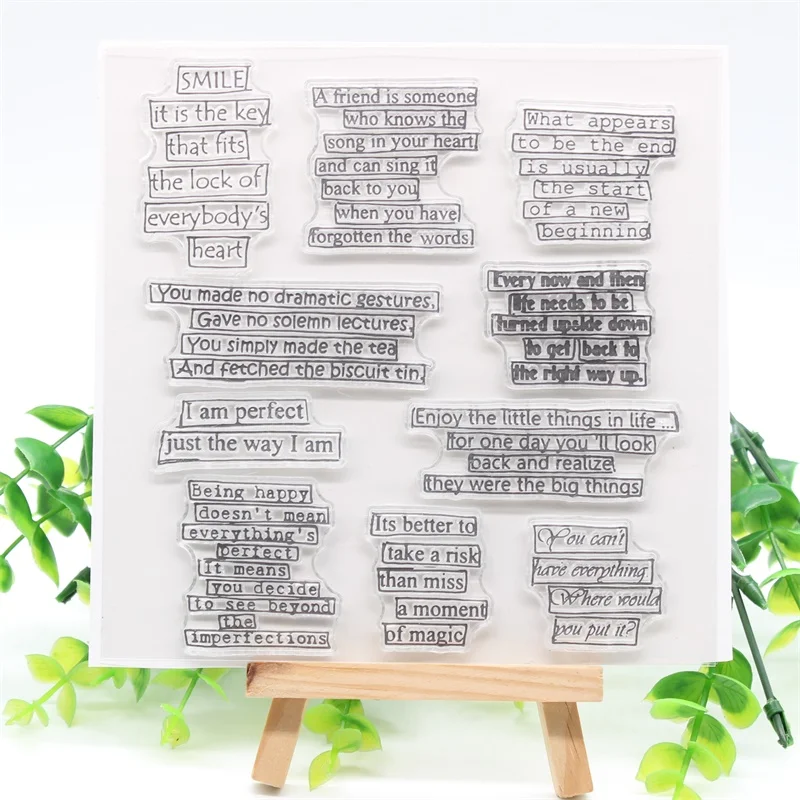 SMILE
it is the key
that fits
the lock of
everybody's
heart
A friend is someone
who knows the
song in your heart
and can sing it
back to you
when you have
forgotten the words.
What appears
to be the end
is usually
the start
of a new
beginning
You made no dramatic gestures,
Gave no solemn lectures,
You simply made the tea
And fetched the biscuit tin.
Every now and then
life needs to be
turned upside down
to get back to
the right way up.
I am perfect
just the way I am
Enjoy the little things in life ...
for one day you 'll look
back and realize
they were the big things
Being happy
doesn't mean
everything's
perfect
It means
you decide
to see beyond
the
imperfections
Its better to
take a risk
than miss
a moment
of magic
You can't
have everything
Where would
you put it?